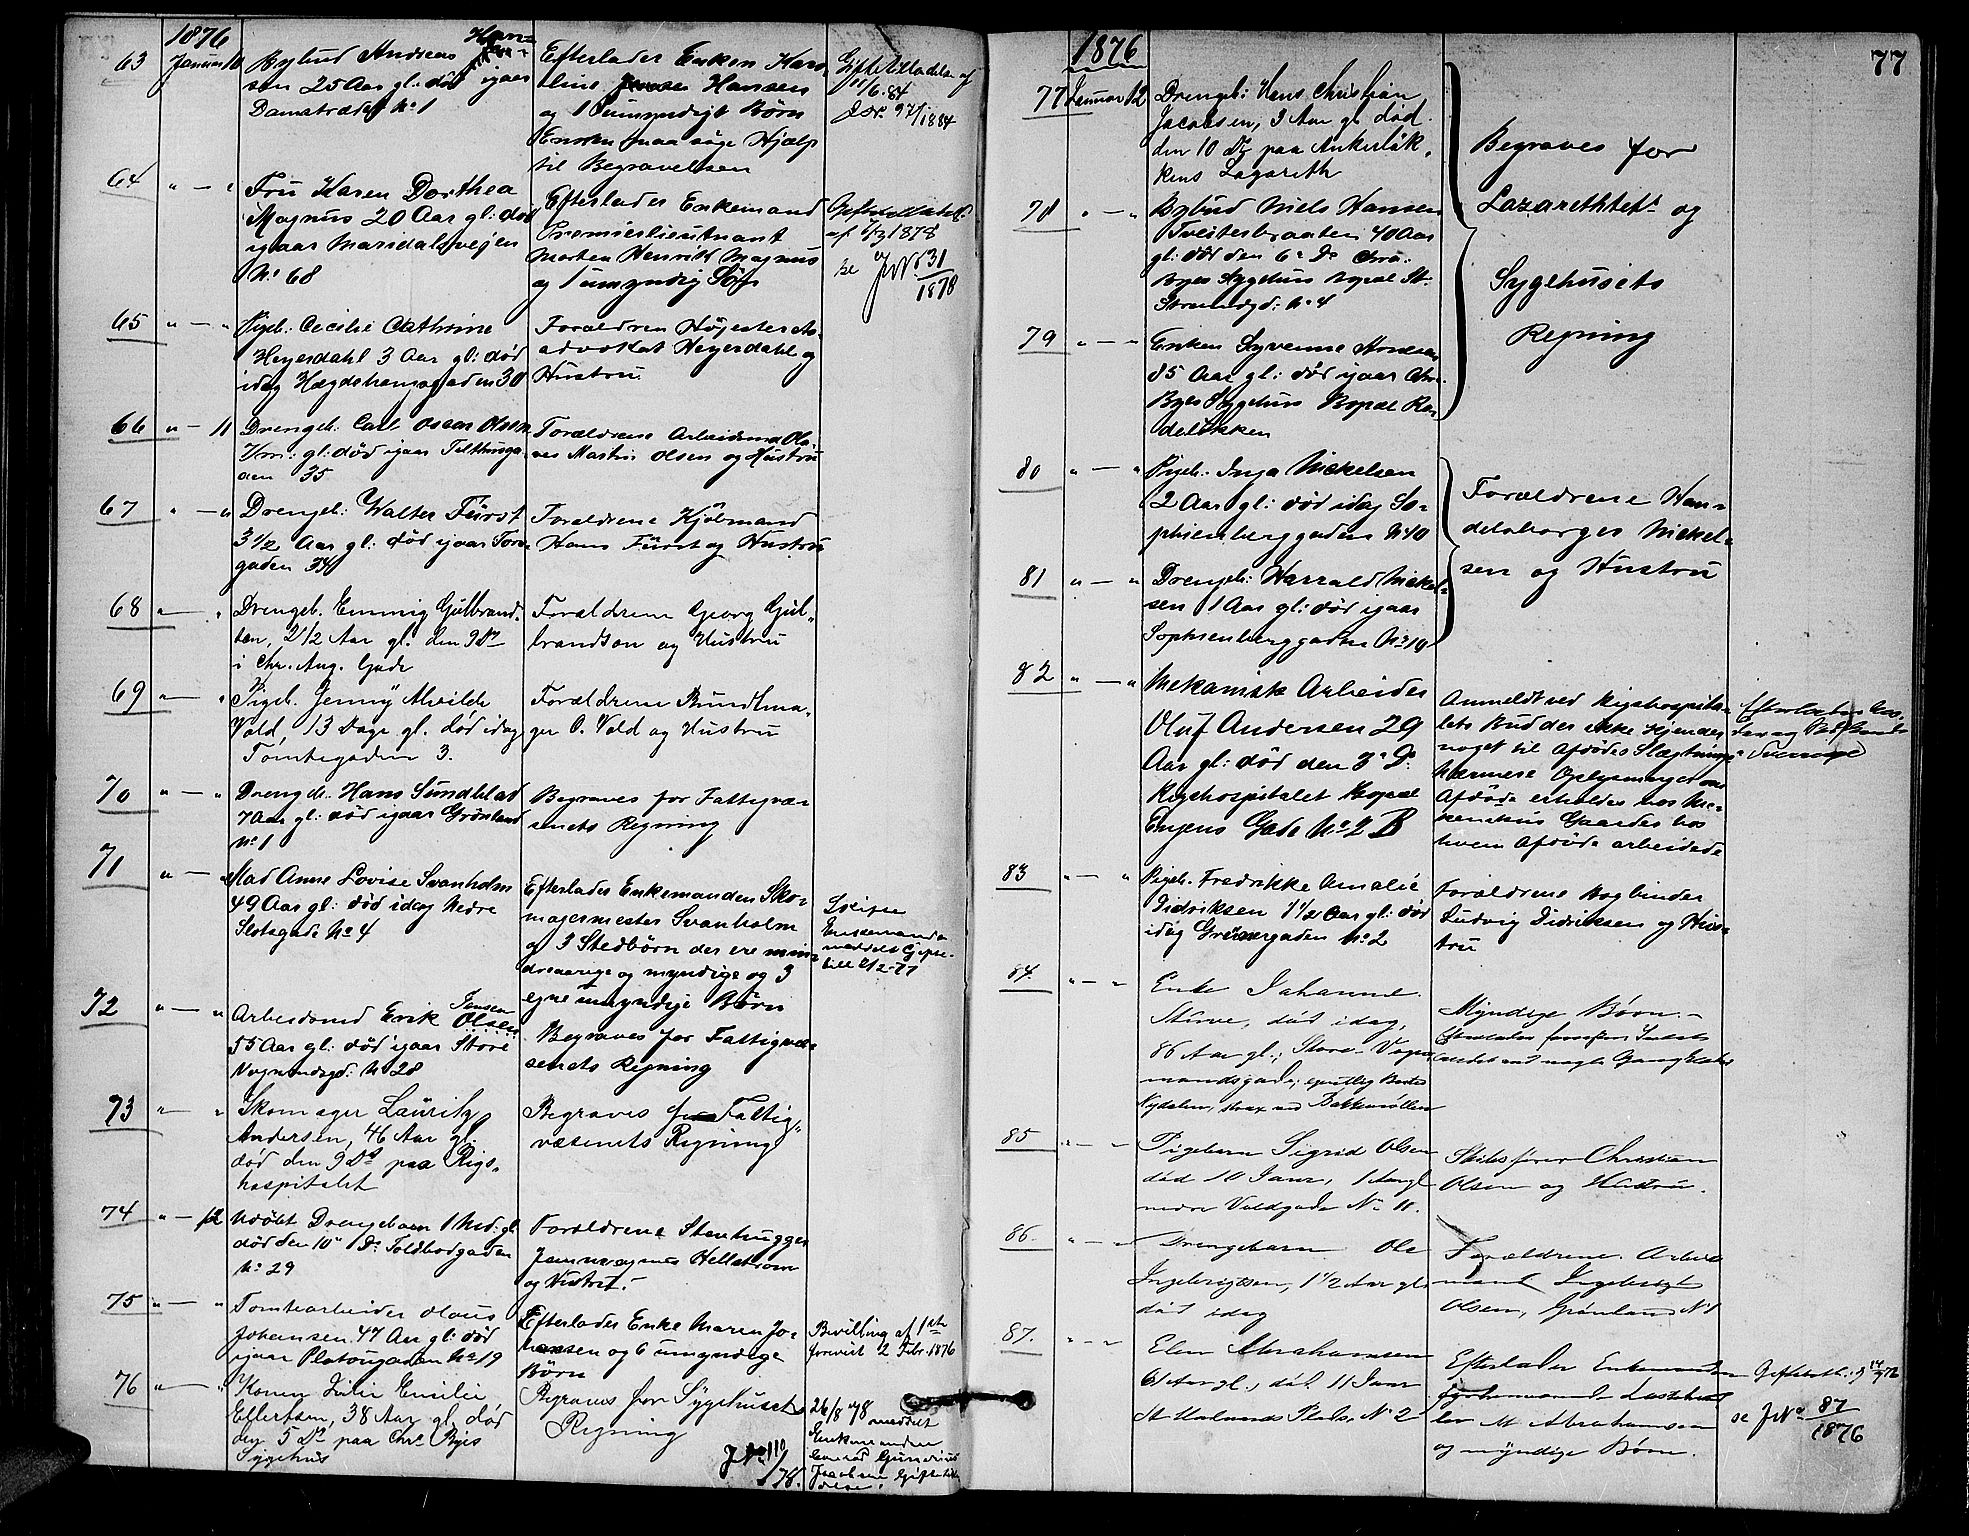 1876
63
Januar 10
Bybud Andreas Han-
sen 25 Aar gl: død igaar
Damstrædet No 1
Efterlader Enken Karo-
line Hansen
og 1 umyndigt Børn
Enken maa søge Hjælp
til Begravelsen
Giftetilladelse af
11/6. 84
J. No. 97/1884
64
" — "
Fru Karen Dorthea
Magnus 20 Aar gl: død
igaar Maridalsvejen
No 68
Efterlader Enkemand
Premierlieutnant
Morten Henrik Magnus
og 1 umyndig Søn
af 1/3 1878
se JNo 31
1878
65
" — "
Pigeb: Cecilie Cathrine
Heyerdahl 3 Aar gl: død
idag Hægdehaugsgaden 30
Forældren Højesterets-
advokat Heyerdahl og
Hustru.
66
" — 11
Drengeb: Carl Oscar Olsen
gl: død igaar Telthusga-
den 35
Forældrene Arbeidsmd Ola-
ves Martin Olsen og Hustru
67
" — "
Drengeb: Walter Fürst
3 1/2 Aar gl: død igaar Torv-
gaden 34
Forældrene Kjøbmand
Hans Fürst og Hustru
68
" — "
Drengeb. Emmig Gulbrand-
sen, 2 1/2 Aar gl. den 9 Ds
i Chr. Aug. Gade
Forældrene Georg Gul-
brandson og Hustru
69
" — "
Pigeb. Jenny Alvilde
Vold, 13 Dage gl. død idag
Tomtegaden 3.
Forældrene Bundtma-
ger O. Vold og Hustru
70
" — "
Drengeb. Hans Sundblad
7 Aar gl: død igaar Grønland
No 1
Begraves for Fattigvæ-
senets Regning
71
" — "
Mad Anne Lovise Svanholm
49 Aar gl: død idag Nedre
Slotsgade No 4
Efterlader Enkemanden Sko-
magermester Svanholm
og 3 Stedbørn der ere min-
dreaarige og myndige og 3
egne umyndige Børn
Skifte
Enkemanden
meddelt Gifte-
till 2/2-77
72
" — "
Arbeidsmd Erik Jensen
Olsen
55 Aar gl: død igaar Store
Vognmdsgd: No 28
Begraves for Fattigvæ-
senets Regning
73
" — "
Skomager Lauritz
Andersen, 46 Aar gl.
død den 9 Ds paa Rigs-
hospitalet
Begraves for Fattig-
væsenets Regning
74
" — 12
Udøbt Drengebarn 1 Md: gl
død den 10 Ds Toldbodgaden
No 29
Forældrene Stenhugger
Hellstrøm
og Hustru.
75
" — "
Tomtearbeider Olaus
Johansen 47 Aar gl: død
igaar Platougaden No 19
Efterlader Enke Maren Jo-
hansen og 6 umyndige
Børn
Bevilling af 1ste
forevist 2 Febr. 1876
76
" — "
Konen Julie Emilie
Ellertsen, 38 Aar gl. død
den 5 Ds paa Chr. Byes
Sygehus
Begraves for Sygehusets
Regning
JNo 110/78.
26/8 78 meddelt
Enkemanden
Gunerius
Jacobsen Giftetilla-
delse.
1876
77
77
Januar 12
Drengeb: Hans Christian
Jacobsen, 3 Aar gl død
den 10 Ds paa Ankerløk-
kens Lazareth
78
" — "
Bybud Niels Hansen
Tveiterbraaten 40 Aar
gl: død den 6 Ds Chra.
Byes Sygehus Bopæl St.
Strandgd: No 4
79
" — "
Enken Syverine
85 Aar gl: død igaar Chr.
Byes Sygehus Bopæl Ro-
deløkken
Begraves for
Lazarethtets og
Sygehusets
Regning
80
" — "
Pigeb: Inga Mikelsen
2 Aar gl: død idag So-
phienberggaden No 10
81
" — "
Drengeb: Harrald Mikel-
sen 1 Aar gl: død igaar
Sophienberggaden No 19
Forældrene Han-
delsborger Mikel-
sen og Hustru
82
" — "
Mekaniske Arbeider
Oluf Andersen 29
Aar gl: død den 3 Ds
Rigshospitalet Bopæl
Engens Gade No 2 B
Anmeldt ved Rigshospita-
lets Bud der ikke kjender
noget til Afdødes Slægtninge
Nærmere Oplysninger om
Afdøde erholdes hos Me-
Gaarder hos
hvem Afdøde arbeidede
83
" — "
Pigeb. Fredrikke Amalie
Didriksen 1 1/2 Aar gl: død
idag Grønnegaden No 2
Forældrene Bogbinder
Ludvig Didriksen og Hus-
tru
84.
" — "
Enke Johanne
Stuve, død idag,
86 Aar gl., Store Vogn-
mandsgade, egentlig Bosted
Nydalen, strax ved Bakkemøllen
Myndige Børn.-
85
" — "
Pigebarn Sigrid Olsen
død 10 Janr, 1 Aar gl
nedre Voldgade No 11.
Skibsfører Christian
Olsen og Hustru.
86.
" — "
Drengebarn Ole
Ingebrigtsen, 1 1/2 Aar gl.
død idag
Forældrene Arbeids-
mand Ingebrigt
Olsen, Grønland No 1
87.
" — "
Elen Abrahamsen
61 Aar gl., død 11 Janr
St Halvards Plads, No 2
Efterlader Enkemanden
M. Abrahamsen
og myndige Børn.
se JNo 87
1876